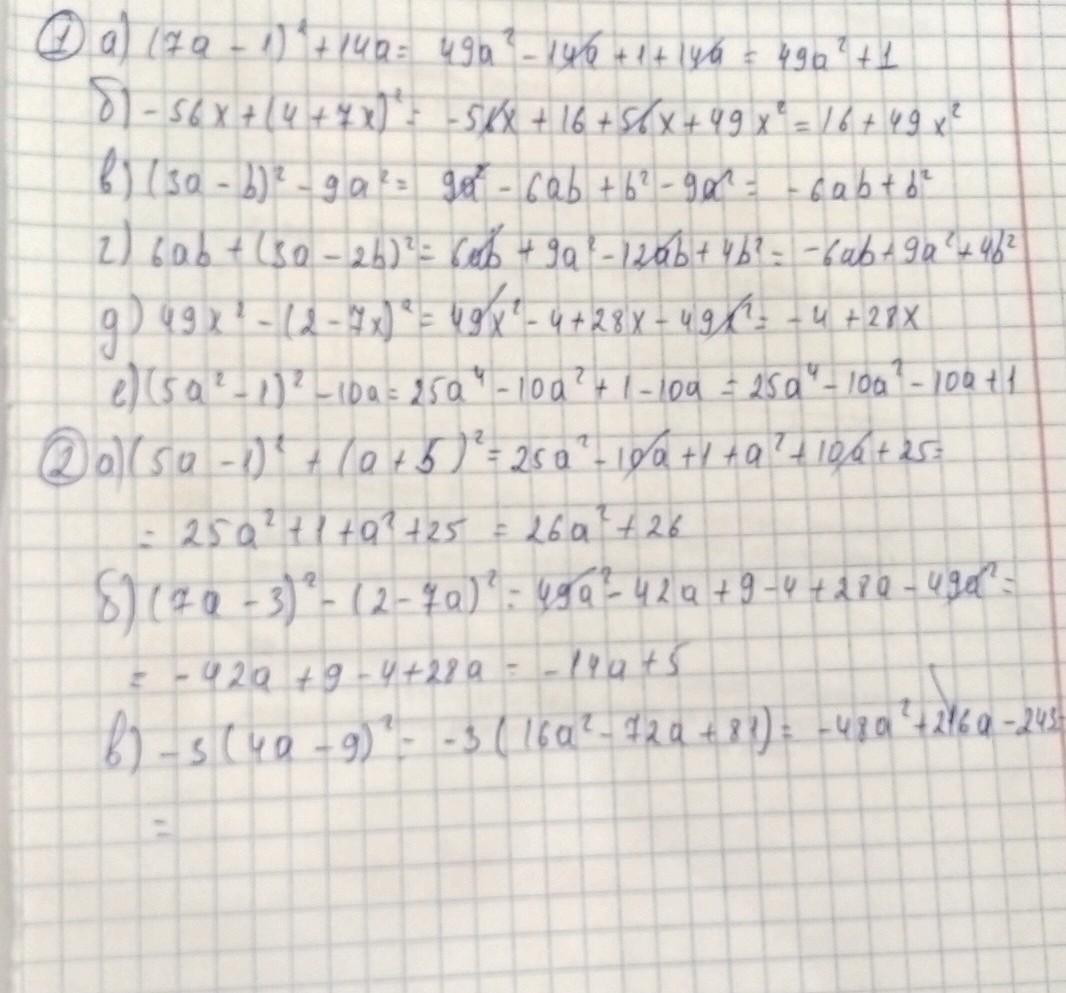 ① а) (7a - 1)² + 14a = 49a² - 14a + 1 + 14a = 49a² + 1
б) - 56x + (4 + 7x)² = - 56x + 16 + 56x + 49x² = 16 + 49x²
в) (3a - b)² - 9a² = 9a² - 6ab + b² - 9a² = - 6ab + b²
г) 6ab + (3a - 2b)² = 6ab + 9a² - 12ab + 4b² = - 6ab + 9a² + 4b²
д) 49x² - (2 - 7x)² = 49x² - 4 + 28x - 49x² = - 4 + 28x
е) (5a² - 1)² - 10a = 25a⁴ - 10a² + 1 - 10a = 25a⁴ - 10a² - 10a + 1
② а) (5a - 1)² + (a + 5)² = 25a² - 10a + 1 + a² + 10a + 25 =
= 25a² + 1 + a² + 25 = 26a² + 26
б) (7a - 3)² - (2 - 7a)² = 49a² - 42a + 9 - 4 + 28a - 49a² =
= - 42a + 9 - 4 + 28a = - 14a + 5
в) - 3 (4a - 9)² = - 3 (16a² - 72a + 81) = - 48a² + 216a - 243
=